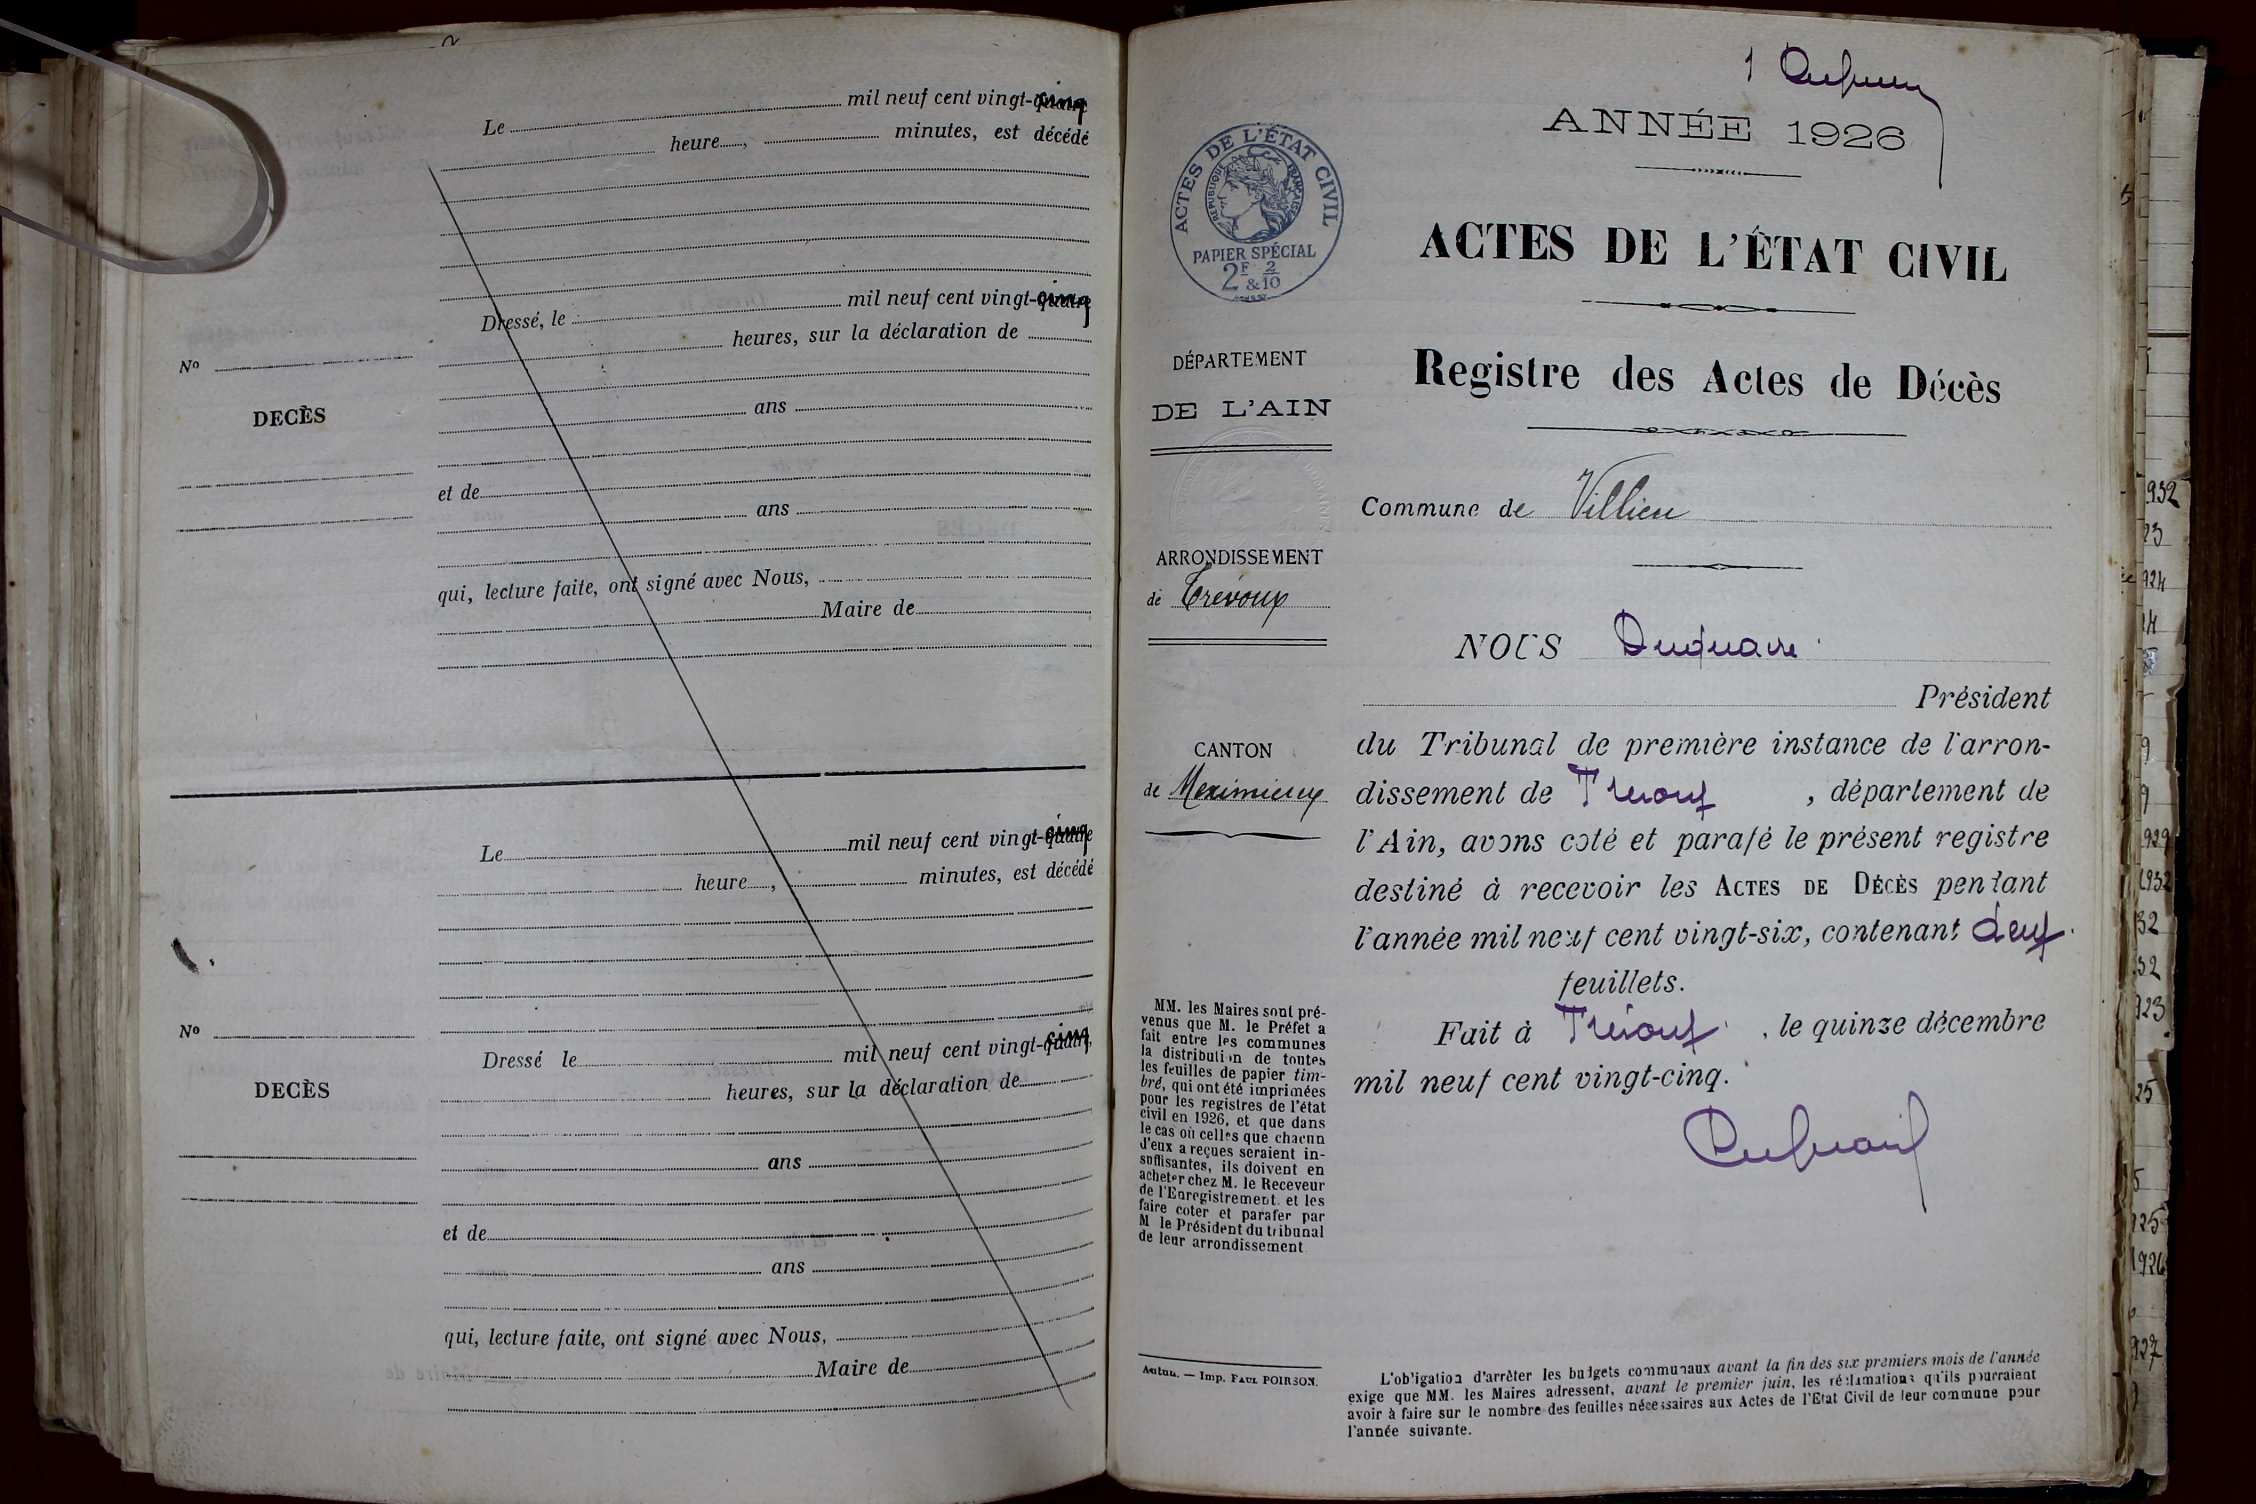 Le mil neuf cent vingt-cinq
heure , minutes, est décédé
Dressé, le mil neuf cent vingt-cinq
heures, sur la déclaration de
ans
et de
ans
qui, lecture faite, ont signé avec Nous,
Maire de
No
DECÈS
Le mil neuf cent vingt-cinq
heure , minutes, est décédé
Dressé le mil neuf cent vingt-cinq
heures, sur la déclaration de
ans
et de
ans
qui, lecture faite, ont signé avec Nous,
Maire de
No
DECÈS
1
ANNÉE 1926
ACTES DE L'ÉTAT CIVIL
RÉPUBLIQUE FRANÇAISE
PAPIER SPÉCIAL
2F & 2/10
ACTES DE L'ÉTAT CIVIL
Registre des Actes de Décès
DÉPARTEMENT
DE L'AIN
ARRONDISSEMENT
de Trévoux
CANTON
de Meximieux
MM. les Maires sont pré-
venus que M. le Préfet a
fait entre les communes
la distribution de toutes
les feuilles de papier tim-
bré, qui ont été imprimées
pour les registres de l'état
civil en 1926, et que dans
le cas où celles que chacun
d'eux a reçues seraient in-
suffisantes, ils doivent en
acheter chez M. le Receveur
de l'Enregistrement et les
faire coter et parafer par
M le Président du tribunal
de leur arrondissement
Autun. — Imp. PAUL POIRSON.
Commune de Villieu
NOUS
Président
du Tribunal de première instance de l'arron-
dissement de Trévoux , département de
l'Ain, avons coté et parafé le présent registre
destiné à recevoir les ACTES DE DÉCÈS pendant
l'année mil neuf cent vingt-six, contenant deux
feuillets.
Fait à Trévoux , le quinze décembre
mil neuf cent vingt-cinq.
L'obligation d'arrêter les budgets communaux avant la fin des six premiers mois de l'année
exige que MM. les Maires adressent, avant le premier juin, les réclamations qu'ils pourraient
avoir à faire sur le nombre des feuilles nécessaires aux Actes de l'Etat Civil de leur commune pour
l'année suivante.